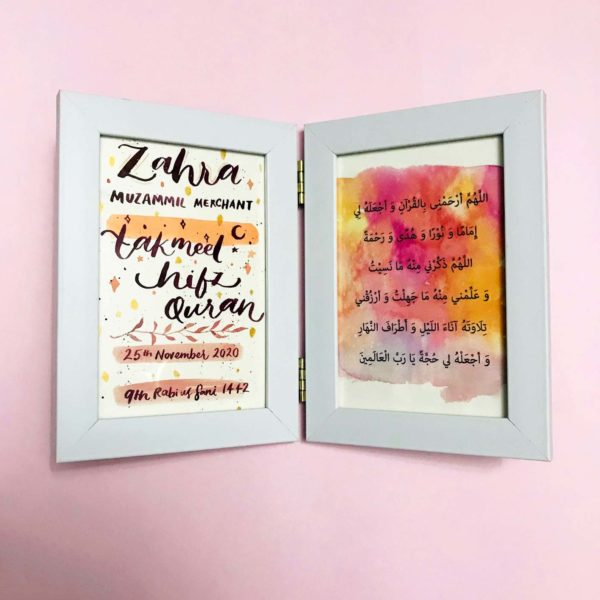 Zahra
MUZAMMIL MERCHANT
takmeel
hifz
Quran
25th November 2020
9th Rabi ul Sani 1442
اللَّهُمَّ ارْحَمْنِي بِالْقُرْآنِ وَ اجْعَلْهُ لِي
إِمَامًا وَ نُورًا وَ هُدًى وَ رَحْمَةً
اللَّهُمَّ ذَكِّرْنِي مِنْهُ مَا نَسِيتُ
وَ عَلِّمْنِي مِنْهُ مَا جَهِلْتُ وَ ارْزُقْنِي
تِلَاوَتَهُ آنَاءَ اللَّيْلِ وَ أَطْرَافَ النَّهَارِ
وَ اجْعَلْهُ لِي حُجَّةً يَا رَبَّ الْعَالَمِينَ